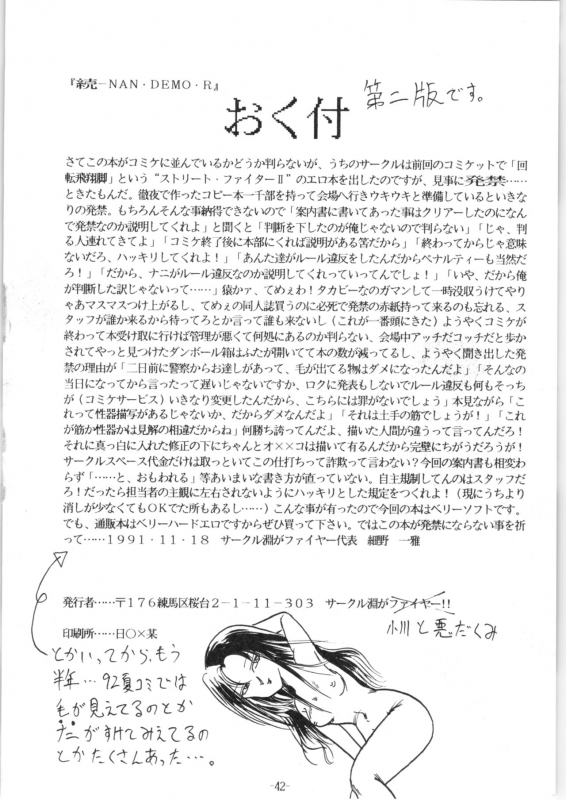 『続－NAN・DEMO・R』
おく付
第二版です。
さてこの本がコミケに並んでいるかどうか判らないが、うちのサークルは前回のコミケットで「回
転飛翔脚」という“ストリート・ファイターⅡ”のエロ本を出したのですが、見事に発禁……
ときたもんだ。徹夜で作ったコピー本一千部を持って会場へ行きウキウキと準備しているといきな
りの発禁。もちろんそんな事納得できないので「案内書に書いてあった事はクリアーしたのになん
で発禁なのか説明してくれよ」と聞くと「判断を下したのが俺じゃないので判らない」「じゃ、判
る人連れてきてよ」「コミケ終了後に本部にくれば説明がある筈だから」「終わってからじゃ意味
ないだろ、ハッキリしてくれよ！」「あんた達がルール違反をしたんだからペナルティーも当然だ
ろ！」「だから、ナニがルール違反なのか説明してくれっていってんでしょ！」「いや、だから俺
が判断した訳じゃないって……」猿かァ、てめぇわ！タカビーなのガマンして一時没収うけてやり
ゃあマスマスつけ上がるし、てめぇの同人誌買うのに必死で発禁の赤紙持って来るのも忘れる、ス
タッフが誰か来るから待ってろとか言って誰も来ないし（これが一番頭にきた）ようやくコミケが
終わって本受け取に行けば管理が悪くて何処にあるのか判らない、会場中アッチだコッチだと歩か
されてやっと見つけたダンボール箱はふたが開いてて本の数が減ってるし、ようやく聞き出した発
禁の理由が「二日前に警察からお達しがあって、毛が出てる物はダメになったんだよ」「そんなの
当日になってから言ったって遅いじゃないですか、ロクに発表もしないでルール違反も何もそっち
が（コミケサービス）いきなり変更したんだから、こちらには罪がないでしょう」本見ながら「こ
れって性器描写があるじゃないか、だからダメなんだよ」「それは土手の筋でしょうが！」「これ
が筋か性器かは見解の相違だからね」何勝ち誇ってんだよ、描いた人間が違うって言ってんだろ！
それに真っ白に入れた修正の下にちゃんとオ××コは描いて有るんだから完璧にちがうだろうが！
サークルスペース代金だけは取っといてこの仕打ちって詐欺って言わない？今回の案内書も相変わ
らず「……と、おもわれる」等あいまいな書き方が直っていない。自主規制してんのはスタッフだ
ろ！だったら担当者の主観に左右されないようにハッキリとした規定をつくれよ！（現にうちより
消しが少なくてもOKでた所もあるし……）こんな事が有ったので今回の本はベリーソフトです。
でも、通販本はベリーハードエロですからぜひ買って下さい。ではこの本が発禁にならない事を祈
って……1991・11・18　サークル淵がファイヤー代表　細野　一雅
発行者……〒176練馬区桜台2－1－11－303　サークル淵がファイヤー!!
小川と悪だくみ
印刷所……日〇×某
とかいってから、もう
半年…92夏コミでは
毛が見えてるのとか
ナニがすけてみえてるの
とかたくさんあった…。
-42-